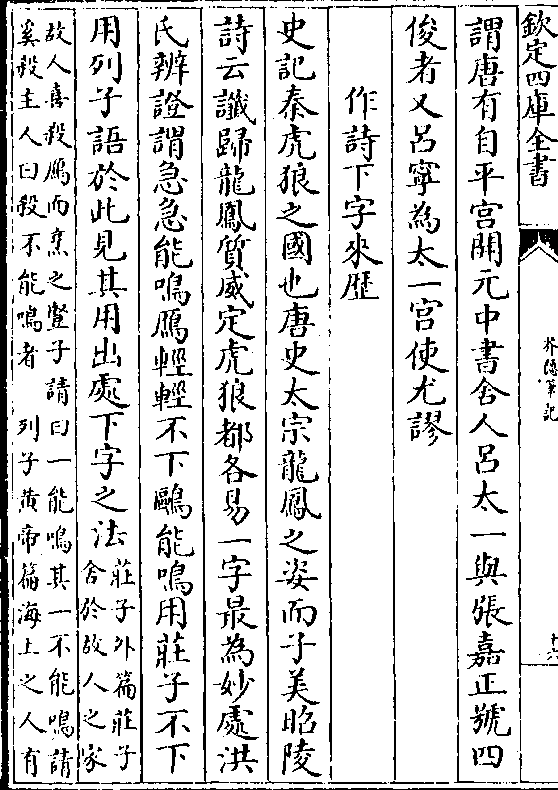 欽定四庫全書
芥隱筆記
十六
謂唐有自平宫開元中書舍人呂太一與張嘉正號四
俊者又呂寜為太一宫使尤謬
作詩下字來歴
史記秦虎狼之國也唐史太宗龍鳳之姿而子美昭陵
詩云讖歸龍鳳質威定虎狼都各易一字最為妙處洪
氏辨證謂急急能鳴鴈輕輕不下鷗能鳴用莊子不下
用列子語於此見其用出處下字之法
莊子外篇莊子
舍於故人之家
故人喜殺鴈而烹之豎子請曰一能鳴其一不能鳴請
奚殺主人曰殺不能鳴者 列子黄帝篇海上之人有